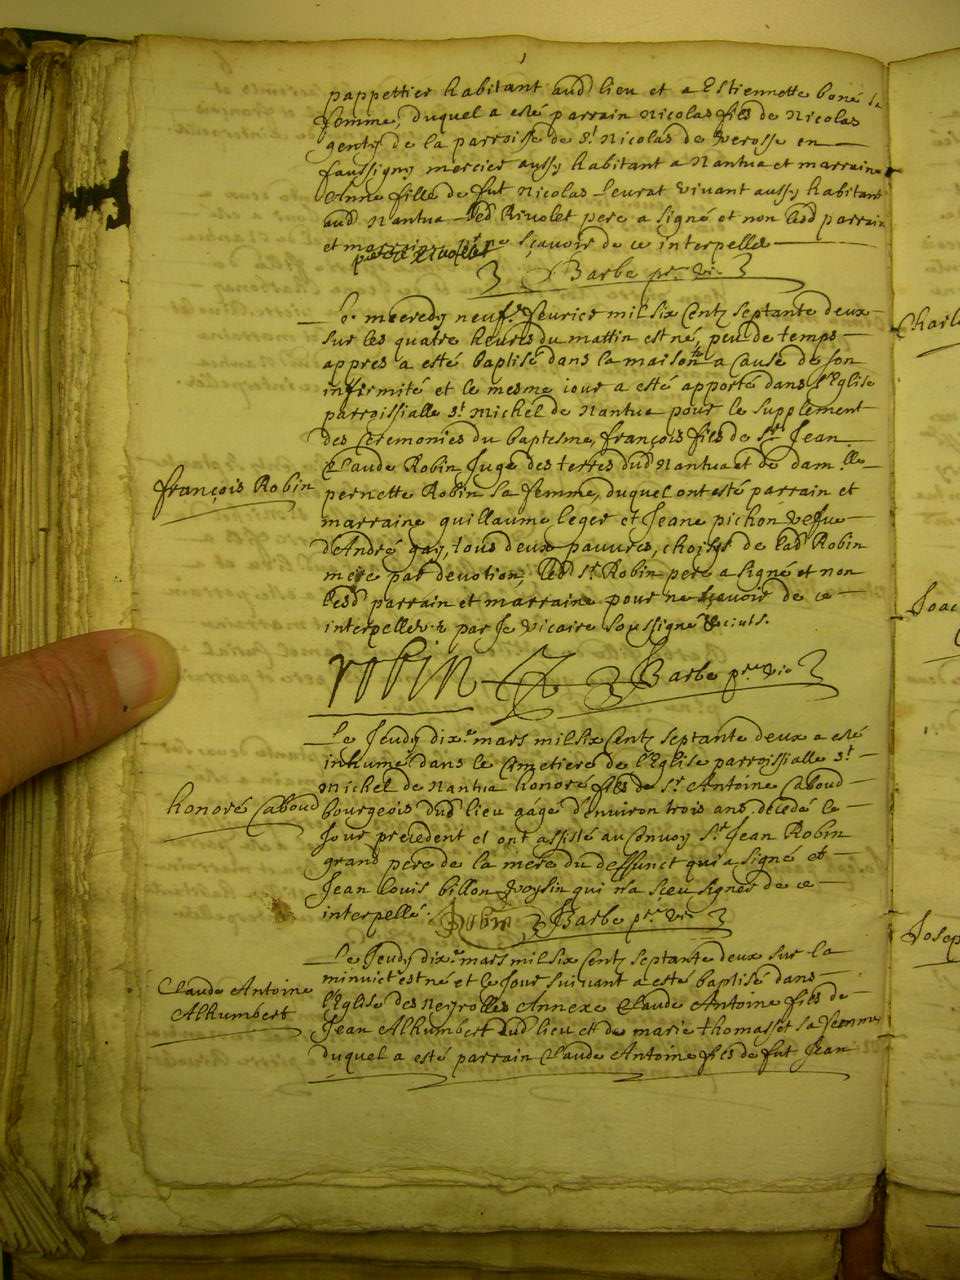 pappettier habitant aud lieu et a Estiennette boné sa
femme, duquel a esté parrain Nicolas fils de Nicolas
genty de la parroisse de St Nicolas de Verosse en
faussigny mercier aussy habitant a Nantua et marraine
Anne fille de fut Nicolas Leurat vivant aussy habitant
aud Nantua led Rivolet pere a signé et non lesd parrain
et marraine pr ne sçavoir de ce interpellé
Barbe pre. vic.
Le mecredy neufe. feurier mil six Cents septante deux
sur les quatre heures du mattin est né, peu de temps
appres a esté baptisé dans la maison a cause de son
infirmité et le mesme iour a esté apporté dans l'Eglise
parroissialle St Michel de Nantua pour le supplement
des Ceremonies du baptesme, françois fils de Sr Jean
Claude Robin Juge des terres dud Nantua et de dam.lle
pernette Robin sa femme, duquel ont esté parrain et
marraine guillaume leger et Jeane pichon vefue
d'André gay, tous deux pauures, choisys de lad Robin
mere par devotion, led Sr Robin pere a signé et non
lesd parrain et marraine pour ne sçavoir de ce
interpellez par Je vicaire soussigné
françois Robin
robin Barbe pre. vic
Le Jeudy dixe. mars mil six Cents septante deux a esté
inhumé dans le Cimetiere de l'Eglise parroissialle St
Michel de Nantua honoré fils de Sr Antoine Caboud
bourgeois dud lieu aagé d'environ trois ans decedé le
Jour precedent et ont assisté au Convoy Sr Jean Robin
grand pere de la mere du deffunct qui a signé et
Jean Louis billon voysin qui n'a sceu signer de ce
interpellé.
honoré Caboud
Robin Barbe pre. vic
Le Jeudy dixe. mars mil six Cents septante deux sur la
minuict est né et le Jour suivant a esté baptisé dans
l'Eglise des Neyrolles Annexe Claude Antoine fils de
Jean Alhumbert dud lieu et de marie thomasset sa femme
duquel a esté parrain Claude Antoine fils de fut Jean
Claude Antoine
Alhumbert